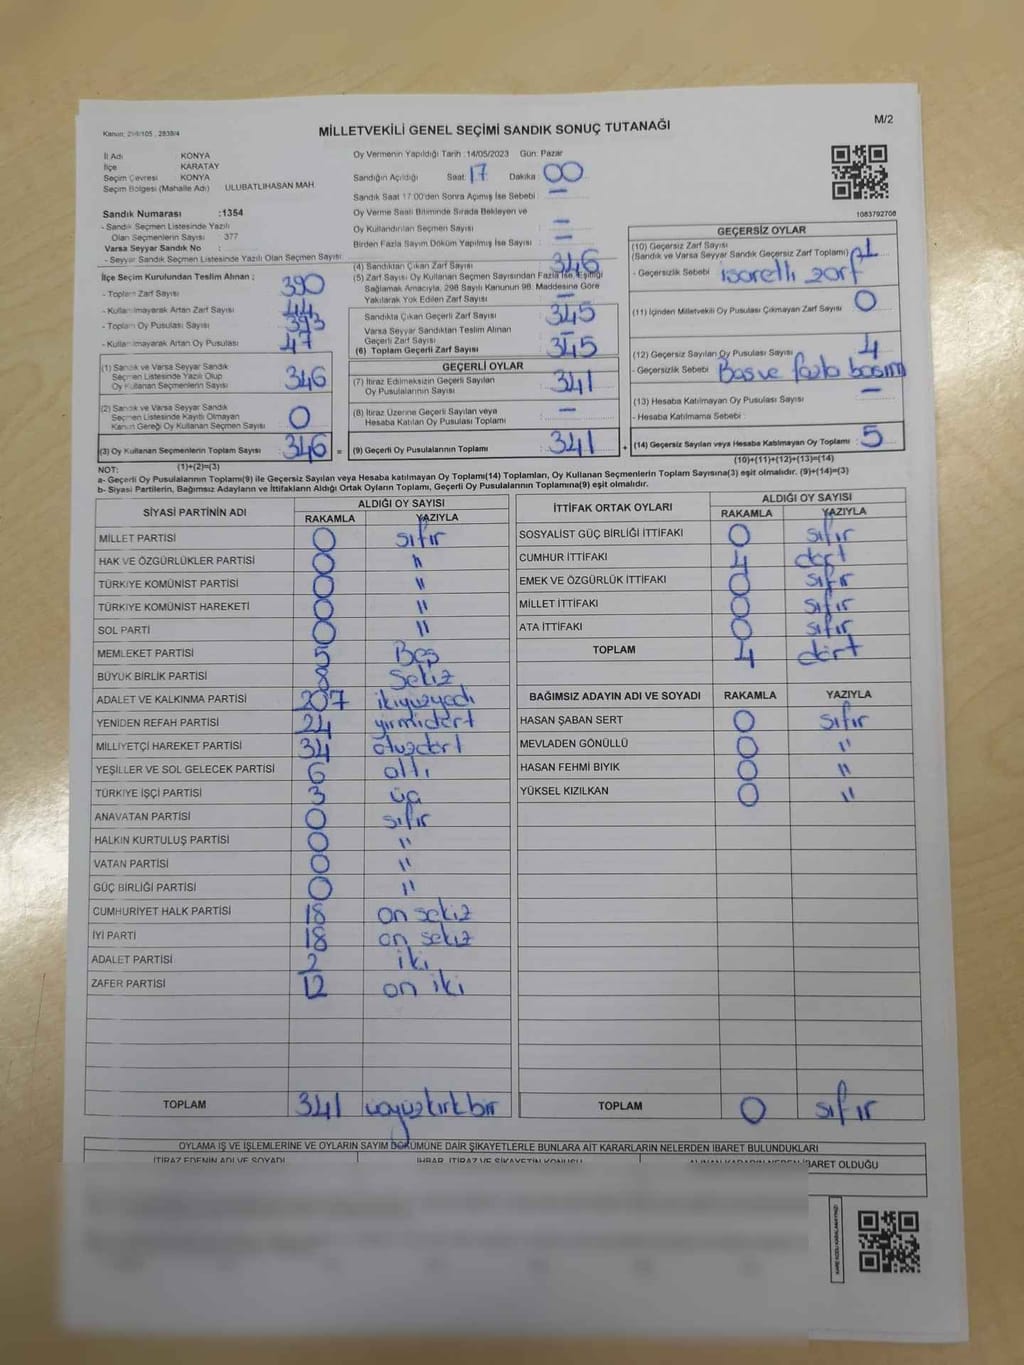 Kanun: 298/105 , 2839/4
MİLLETVEKİLİ GENEL SEÇİMİ SANDIK SONUÇ TUTANAĞI
M/2
İl Adı KONYA
İlçe KARATAY
Seçim Çevresi KONYA
Seçim Bölgesi (Mahalle Adı) ULUBATLIHASAN MAH.
Oy Vermenin Yapıldığı Tarih :14/05/2023 Gün: Pazar
Sandığın Açıldığı Saat: 17 Dakika 00
Sandık Saat 17:00'den Sonra Açımış İse Sebebi : —
Oy Verme Saati Bitiminde Sırada Bekleyen ve
Oy Kullandırılan Seçmen Sayısı : —
Birden Fazla Sayım Döküm Yapılmış İse Sayısı : —
1083792708
Sandık Numarası :1354
- Sandık Seçmen Listesinde Yazılı
Olan Seçmenlerin Sayısı : 377
Varsa Seyyar Sandık No :
- Seyyar Sandık Seçmen Listesinde Yazılı Olan Seçmen Sayısı :
İlçe Seçim Kurulundan Teslim Alınan ;
- Toplam Zarf Sayısı 390
- Kullanılmayarak Artan Zarf Sayısı 44
- Toplam Oy Pusulası Sayısı 393
- Kullanılmayarak Artan Oy Pusulası 47
(1) Sandık ve Varsa Seyyar Sandık
Seçmen Listesinde Yazılı Olup
Oy Kullanan Seçmenlerin Sayısı 346
(2) Sandık ve Varsa Seyyar Sandık
Seçmen Listesinde Kayıtlı Olmayan
Kanun Gereği Oy Kullanan Seçmen Sayısı 0
(3) Oy Kullanan Seçmenlerin Toplam Sayısı 346 =
(1)+(2)=(3)
(4) Sandıktan Çıkan Zarf Sayısı 346
(5) Zarf Sayısı Oy Kullanan Seçmen Sayısından Fazla İse, Eşitliği
Sağlamak Amacıyla, 298 Sayılı Kanunun 98. Maddesine Göre
Yakılarak Yok Edilen Zarf Sayısı —
Sandıkta Çıkan Geçerli Zarf Sayısı 345
Varsa Seyyar Sandıktan Teslim Alınan
Geçerli Zarf Sayısı —
(6) Toplam Geçerli Zarf Sayısı 345
GEÇERLİ OYLAR
(7) İtiraz Edilmeksizin Geçerli Sayılan
Oy Pusulalarının Sayısı 341
(8) İtiraz Üzerine Geçerli Sayılan veya
Hesaba Katılan Oy Pusulası Toplamı —
(9) Geçerli Oy Pusulalarının Toplamı 341 +
GEÇERSİZ OYLAR
(10) Geçersiz Zarf Sayısı
(Sandık ve Varsa Seyyar Sandık Geçersiz Zarf Toplamı) 1
- Geçersizlik Sebebi : isaretli zarf
(11) İçinden Milletvekili Oy Pusulası Çıkmayan Zarf Sayısı 0
(12) Geçersiz Sayılan Oy Pusulası Sayısı 4
- Geçersizlik Sebebi Bos ve fazla basım
(13) Hesaba Katılmayan Oy Pusulası Sayısı : —
- Hesaba Katılmama Sebebi :
(14) Geçersiz Sayılan veya Hesaba Katılmayan Oy Toplamı : 5
(10)+(11)+(12)+(13)=(14)
NOT:
a- Geçerli Oy Pusulalarının Toplamı(9) ile Geçersiz Sayılan veya Hesaba katılmayan Oy Toplamı(14) Toplamları, Oy Kullanan Seçmenlerin Toplam Sayısına(3) eşit olmalıdır. (9)+(14)=(3)
b- Siyasi Partilerin, Bağımsız Adayların ve İttifakların Aldığı Ortak Oyların Toplamı, Geçerli Oy Pusulalarının Toplamına(9) eşit olmalıdır.
SİYASİ PARTİNİN ADI ALDIĞI OY SAYISI
RAKAMLA YAZIYLA
MİLLET PARTİSİ 0 sıfır
HAK VE ÖZGÜRLÜKLER PARTİSİ 0 "
TÜRKİYE KOMÜNİST PARTİSİ 0 "
TÜRKİYE KOMÜNİST HAREKETİ 0 "
SOL PARTİ 0 "
MEMLEKET PARTİSİ 5 Beş
BÜYÜK BİRLİK PARTİSİ 8 Sekiz
ADALET VE KALKINMA PARTİSİ 207 ikiyüzyedi
YENİDEN REFAH PARTİSİ 24 yirmidört
MİLLİYETÇİ HAREKET PARTİSİ 34 otuzdört
YEŞİLLER VE SOL GELECEK PARTİSİ 6 altı
TÜRKİYE İŞÇİ PARTİSİ 3 üç
ANAVATAN PARTİSİ 0 sıfır
HALKIN KURTULUŞ PARTİSİ 0 "
VATAN PARTİSİ 0 "
GÜÇ BİRLİĞİ PARTİSİ 0 "
CUMHURİYET HALK PARTİSİ 18 on sekiz
İYİ PARTİ 18 on sekiz
ADALET PARTİSİ 2 iki
ZAFER PARTİSİ 12 on iki
TOPLAM 341 üçyüzkırkbir
İTTİFAK ORTAK OYLARI ALDIĞI OY SAYISI
RAKAMLA YAZIYLA
SOSYALİST GÜÇ BİRLİĞİ İTTİFAKI 0 sıfır
CUMHUR İTTİFAKI 4 dört
EMEK VE ÖZGÜRLÜK İTTİFAKI 0 sıfır
MİLLET İTTİFAKI 0 sıfır
ATA İTTİFAKI 0 sıfır
TOPLAM 4 dört
BAĞIMSIZ ADAYIN ADI VE SOYADI RAKAMLA YAZIYLA
HASAN ŞABAN SERT 0 sıfır
MEVLADEN GÖNÜLLÜ 0 "
HASAN FEHMİ BIYIK 0 "
YÜKSEL KIZILKAN 0 "
TOPLAM 0 sıfır
OYLAMA İŞ VE İŞLEMLERİNE VE OYLARIN SAYIM DÖKÜMÜNE DAİR ŞİKAYETLERLE BUNLARA AİT KARARLARIN NELERDEN İBARET BULUNDUKLARI
İTİRAZ EDENİN ADI VE SOYADI İHBAR, İTİRAZ VE ŞİKAYETİN KONUSU ALINAN KARARIN NEDEN İBARET OLDUĞU
KARE KODU KARALAMAYINIZ!